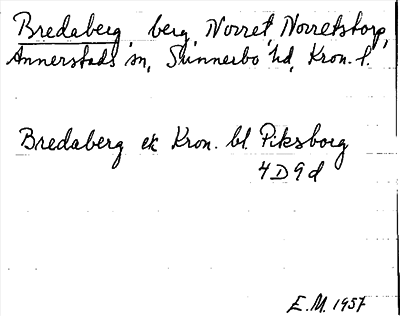 Bredaberg, berg, Norret, Norretstorp,
Annerstads sn, Sunnerbo hd, Kron. l.
Bredaberg ek Kron. bl. Piksborg
4D9d
E.M. 1957